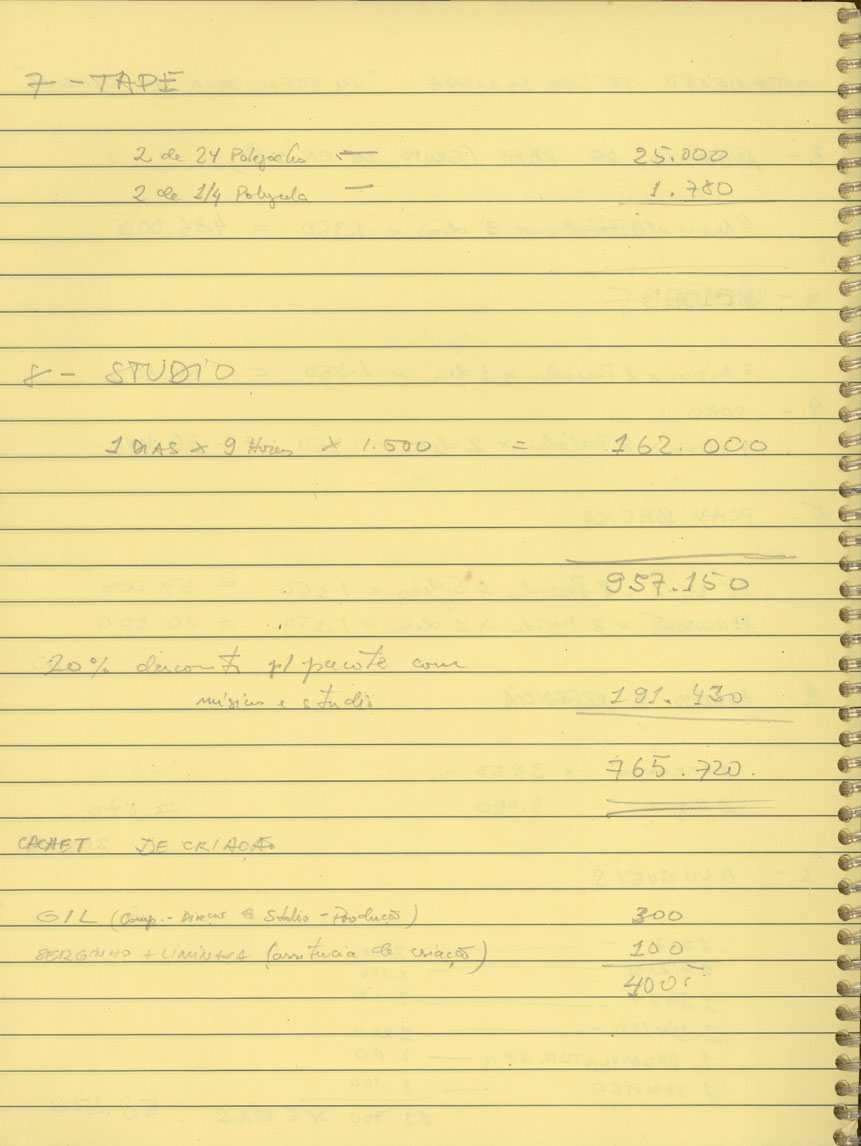 7 - TAPE
2 de 24 Polegadas — 25.000
2 de 1/4 Polegada — 1.780
8 - STUDIO
1 DIAS x 9 Horas x 1.500 = 162.000
957.150
20% desconto p/ pacote com
músicos e studio 191.430
765.720.
CACHET DE CRIAÇÃO
GIL (Comp. - Direcao de Studio - Produção) 300
SERGINHO + LIMINHA (assistencia de criação) 100
400